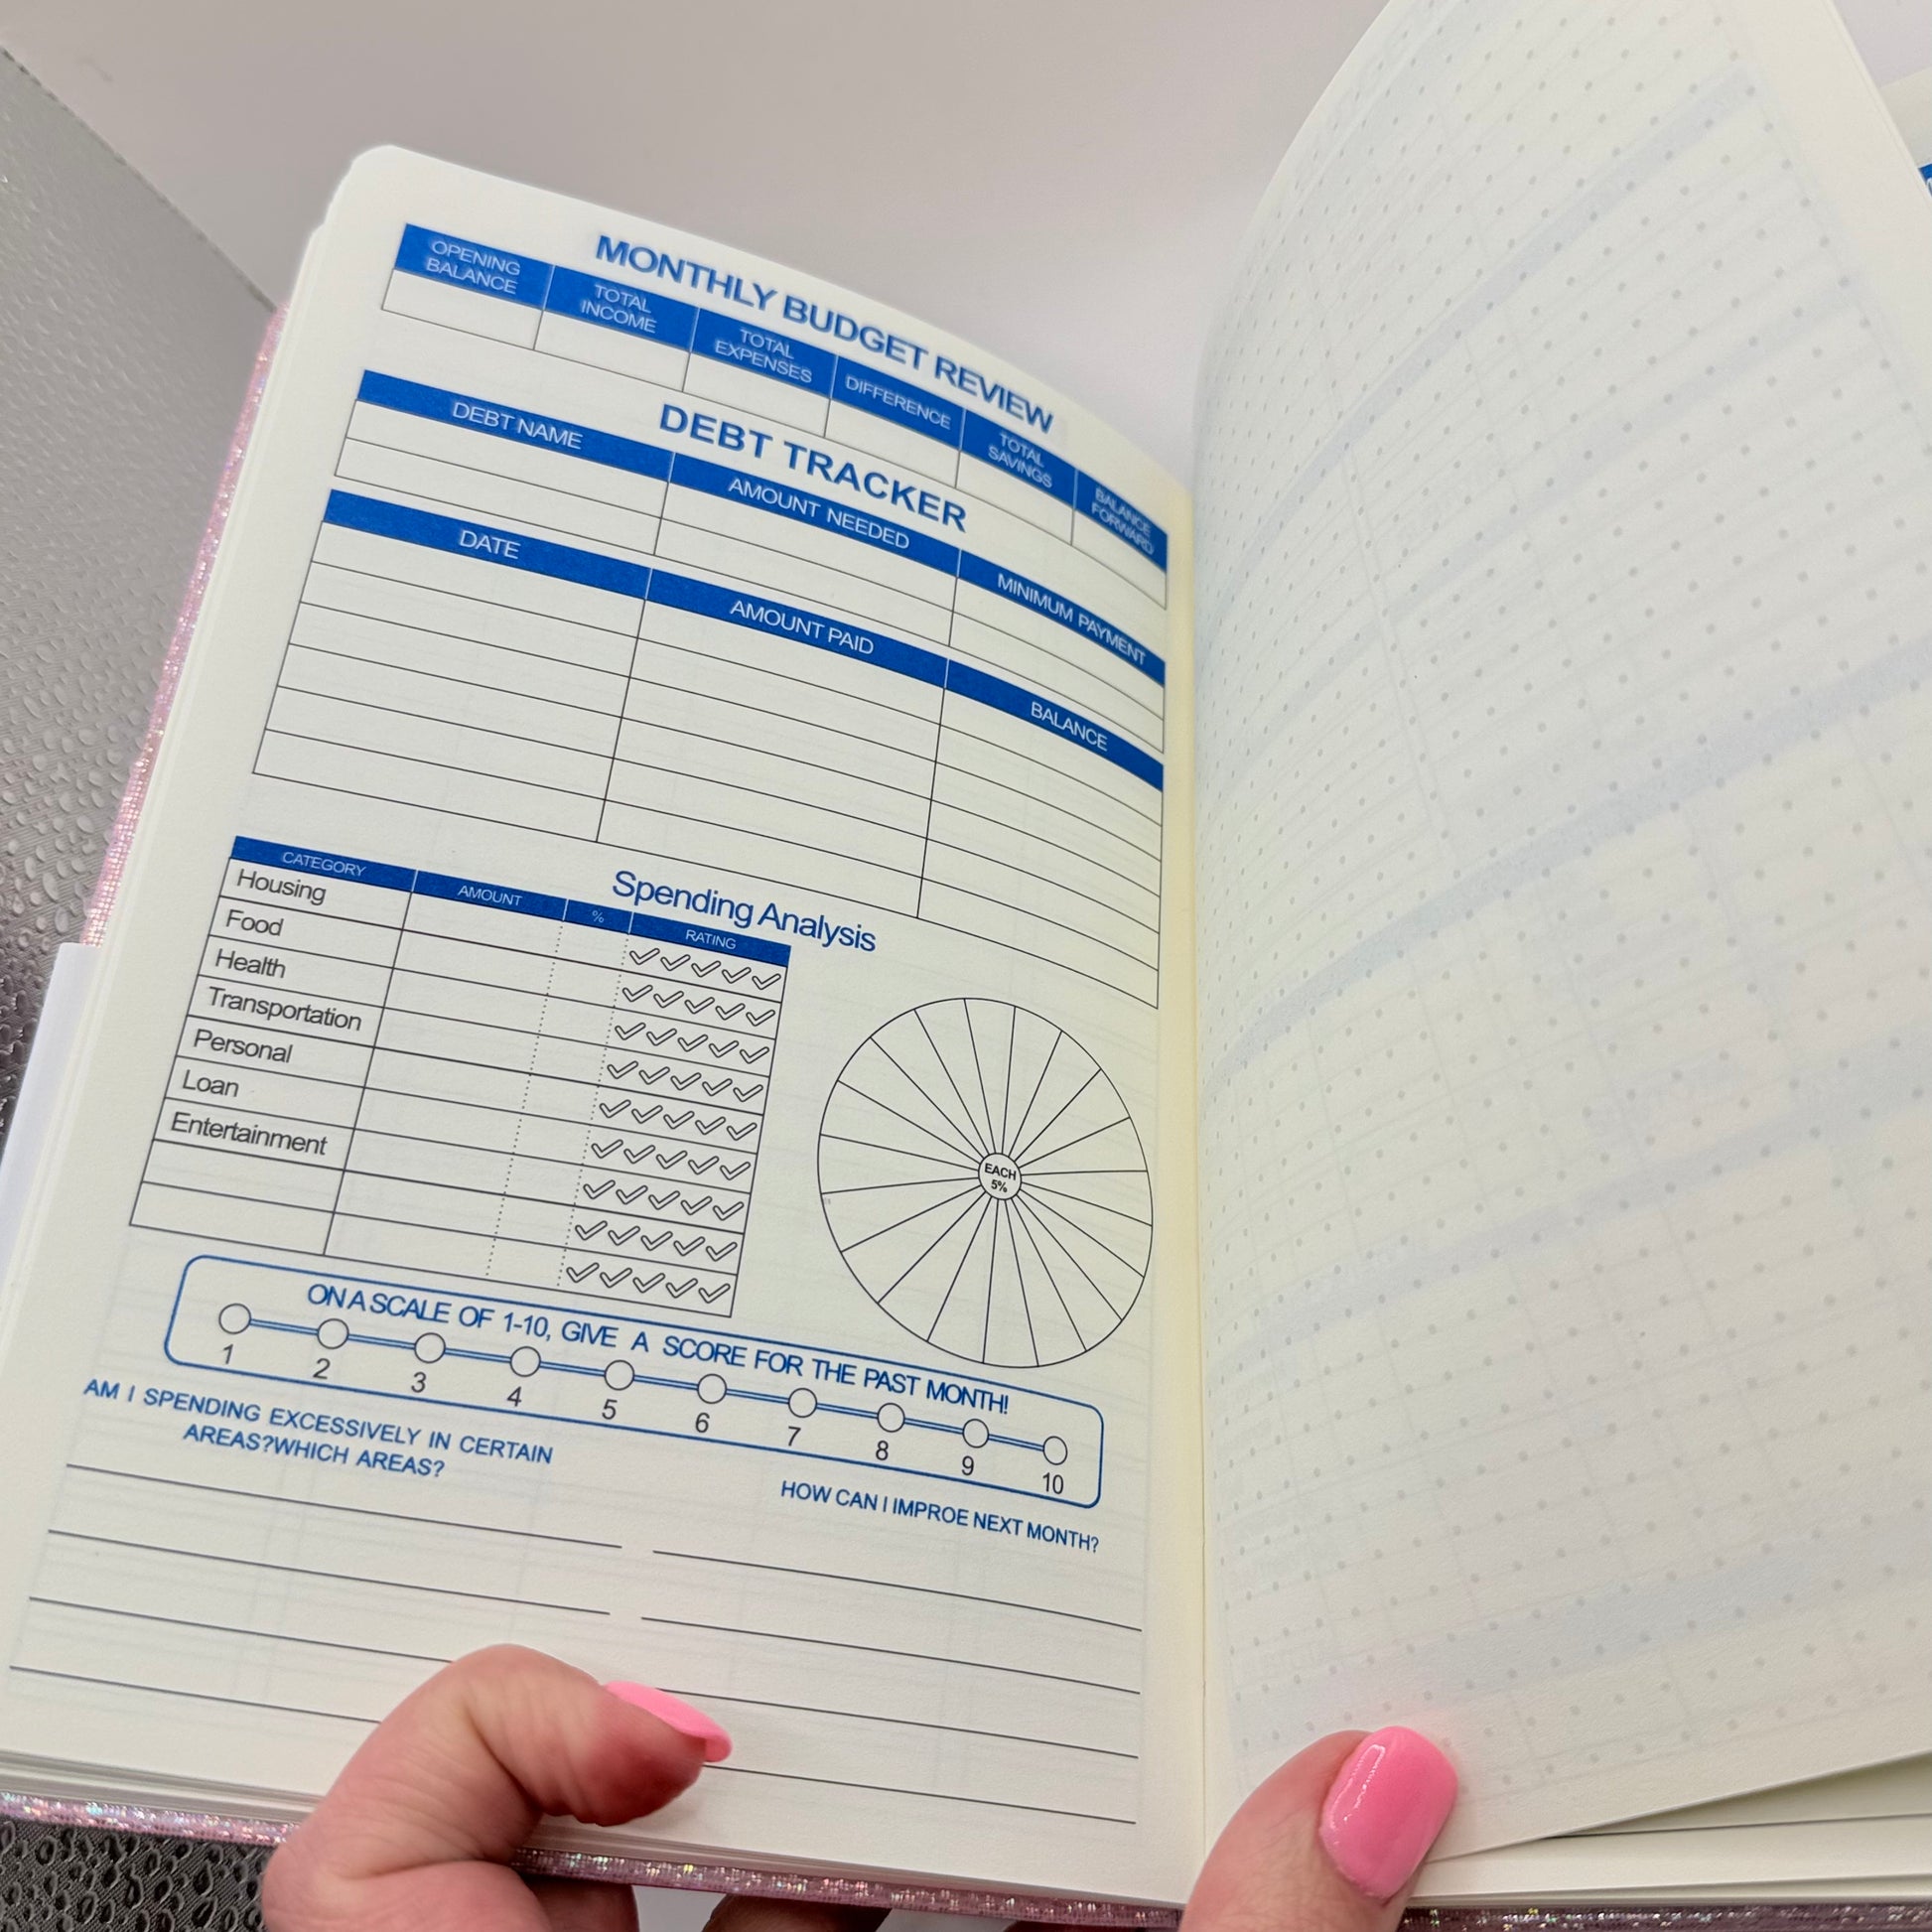 MONTHLY BUDGET REVIEW
OPENING
BALANCE
TOTAL
INCOME
TOTAL
EXPENSES
DIFFERENCE
TOTAL
SAVINGS
BALANCE
FORWARD
DEBT TRACKER
DEBT NAME
AMOUNT NEEDED
MINIMUM PAYMENT
DATE
AMOUNT PAID
BALANCE
Spending Analysis
CATEGORY
AMOUNT
%
RATING
Housing
Food
Health
Transportation
Personal
Loan
Entertainment
EACH
5%
ON A SCALE OF 1-10, GIVE A SCORE FOR THE PAST MONTH!
1 2 3 4 5 6 7 8 9 10
AM I SPENDING EXCESSIVELY IN CERTAIN
AREAS?WHICH AREAS?
HOW CAN I IMPROE NEXT MONTH?